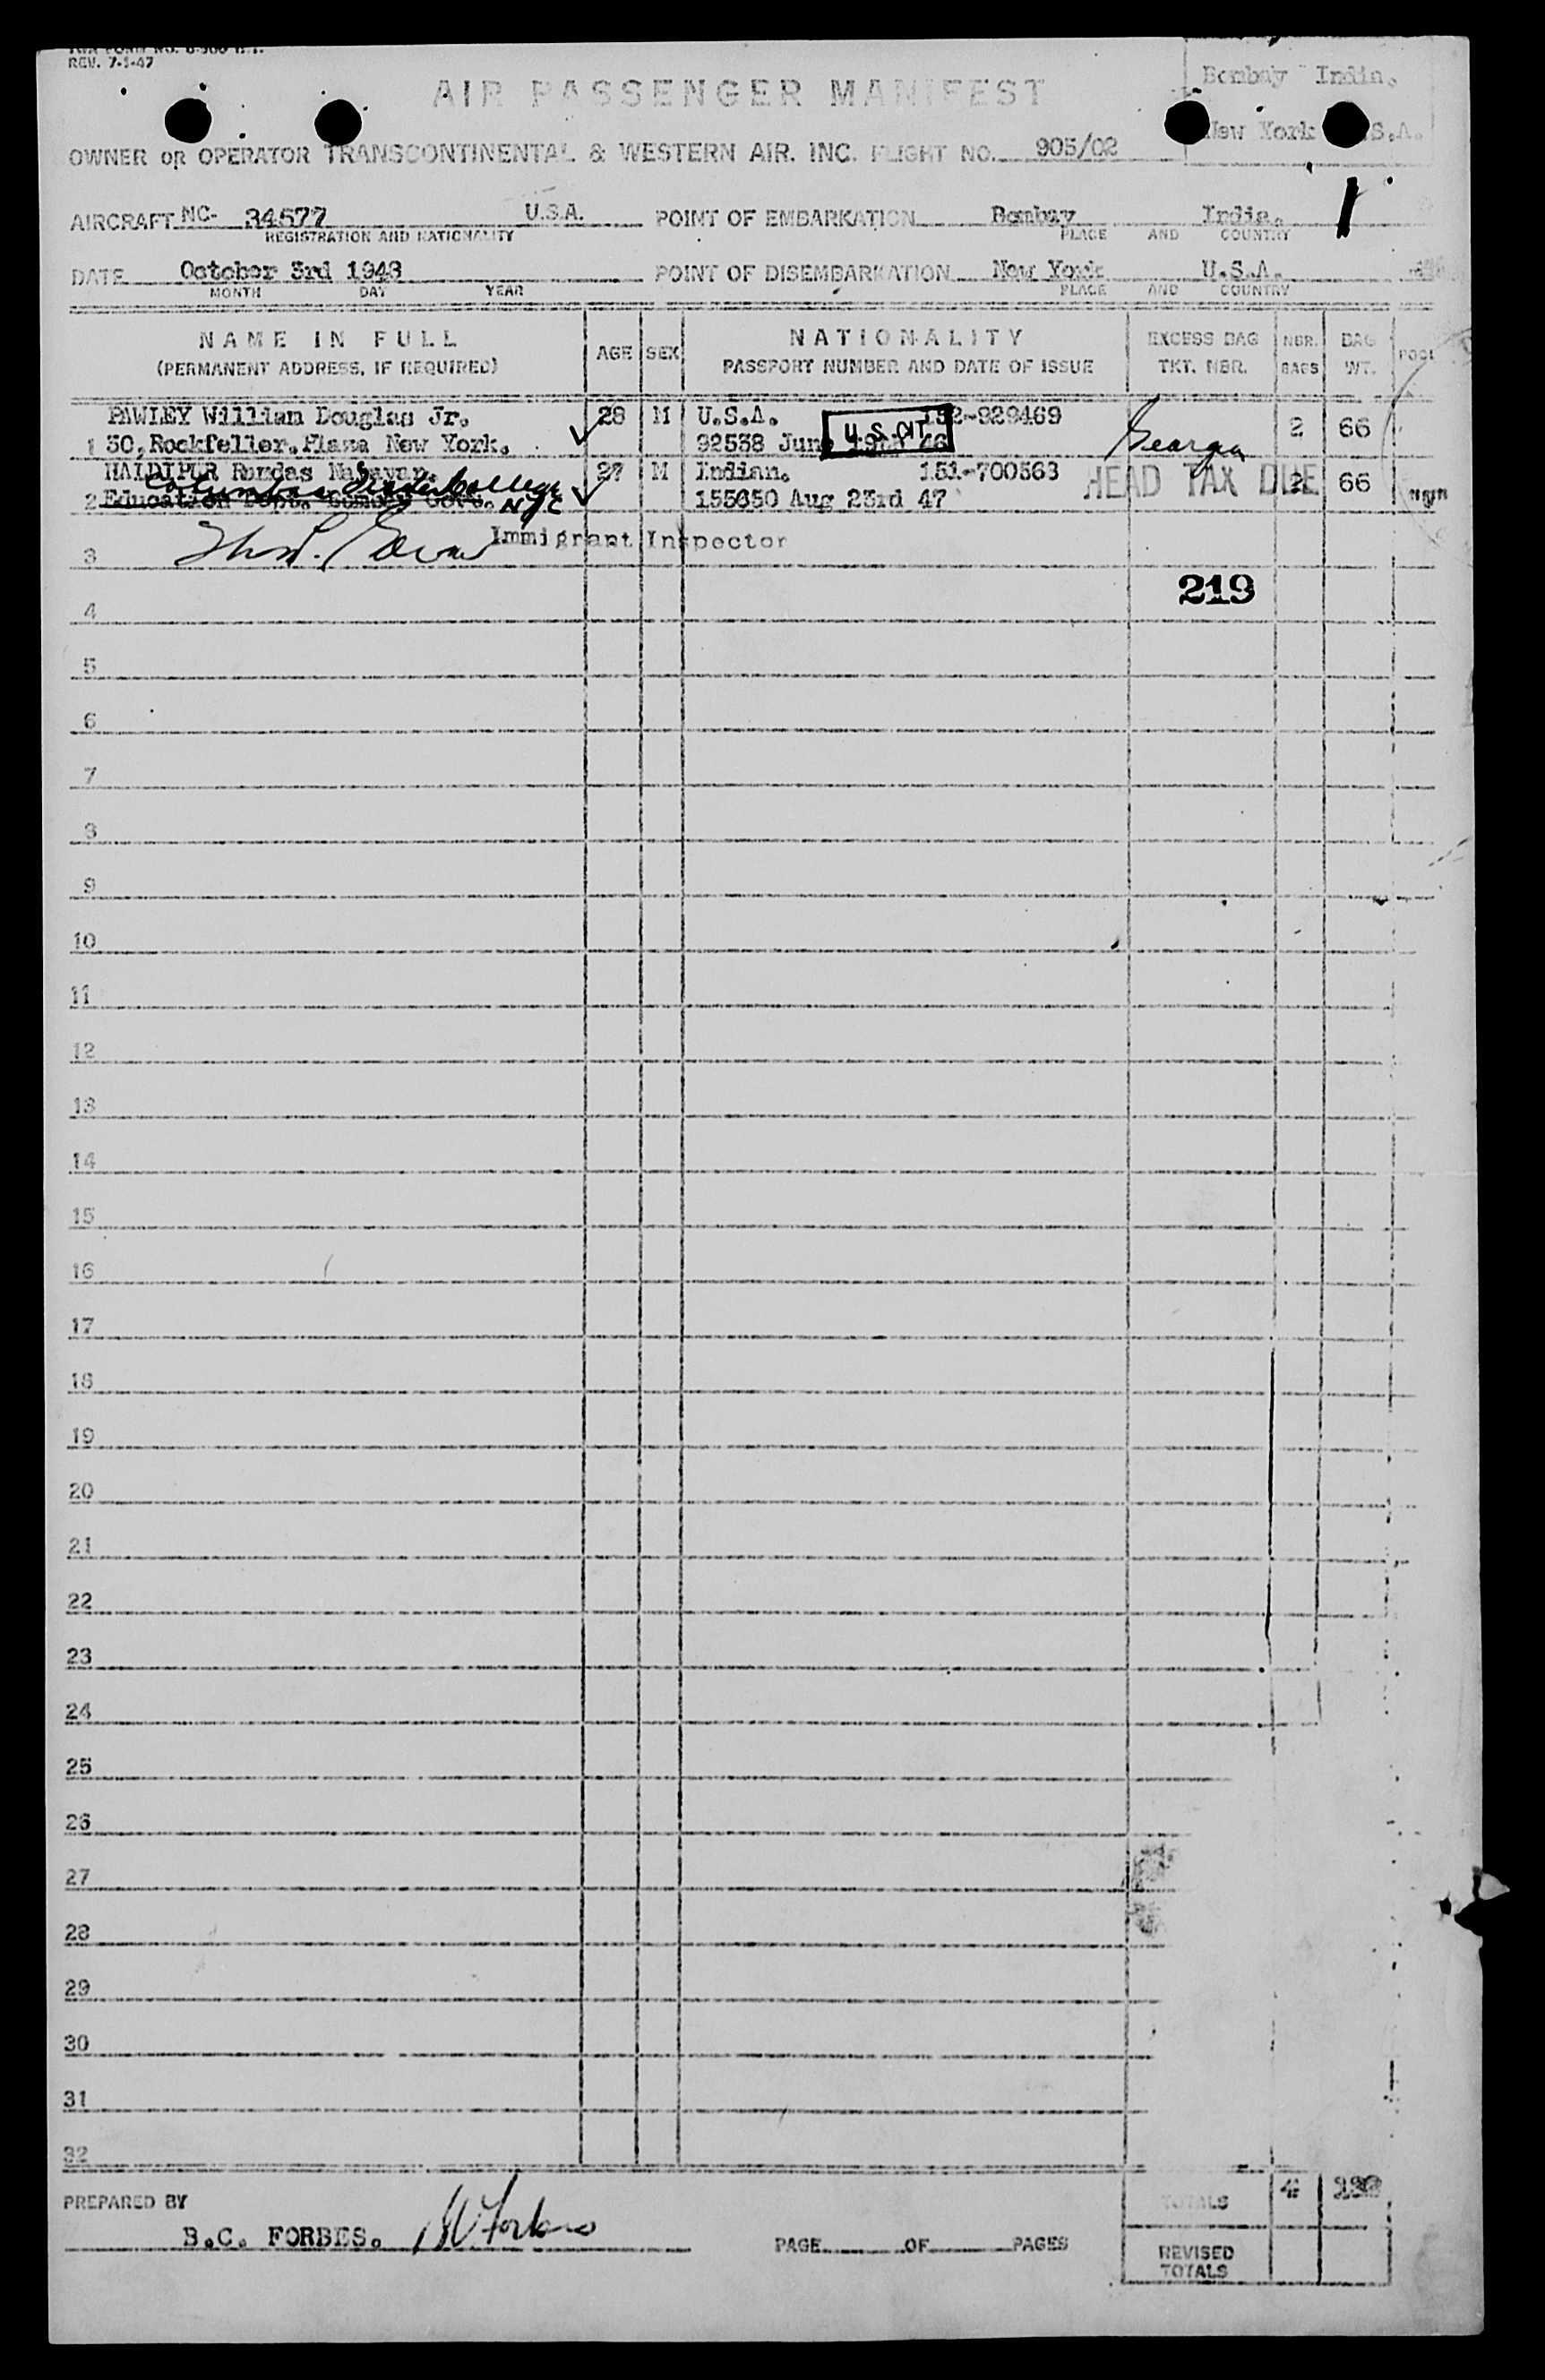 REV. 7-1-47
Bombay India.
AIR PASSENGER MANIFEST
New York S.A.
OWNER OR OPERATOR TRANSCONTINENTAL & WESTERN AIR. INC. FLIGHT NO. 905/02
AIRCRAFT NC- 34577 U.S.A. POINT OF EMBARKATION Bombay India. 1
REGISTRATION AND NATIONALITY PLACE AND COUNTRY
DATE October 3rd 1948 POINT OF DISEMBARKATION New York U.S.A.
MONTH DAY YEAR PLACE AND COUNTRY
NAME IN FULL AGE SEX NATIONALITY EXCESS BAG NBR. BAG
(PERMANENT ADDRESS, IF REQUIRED) PASSPORT NUMBER AND DATE OF ISSUE TKT. NBR. BAGS WT.
PAWLEY William Douglas Jr. 28 M U.S.A. 152-929469 2 66
1 30, Rockfeller. Plaza New York. 92538 June 46 U.S. CIT Georgia
HALDIPUR Ramdas Narayan. 27 M Indian. 151-700563 HEAD TAX DUE 2 66
Columbia College NYC
2 Education Dept. Bombay Govt. 155650 Aug 23rd 47
3 Immigrant Inspector
219
4
5
6
7
8
9
10
11
12
13
14
15
16
17
18
19
20
21
22
23
24
25
26
27
28
29
30
31
32
PREPARED BY TOTALS 4
B.C. FORBES. PAGE OF PAGES
REVISED
TOTALS